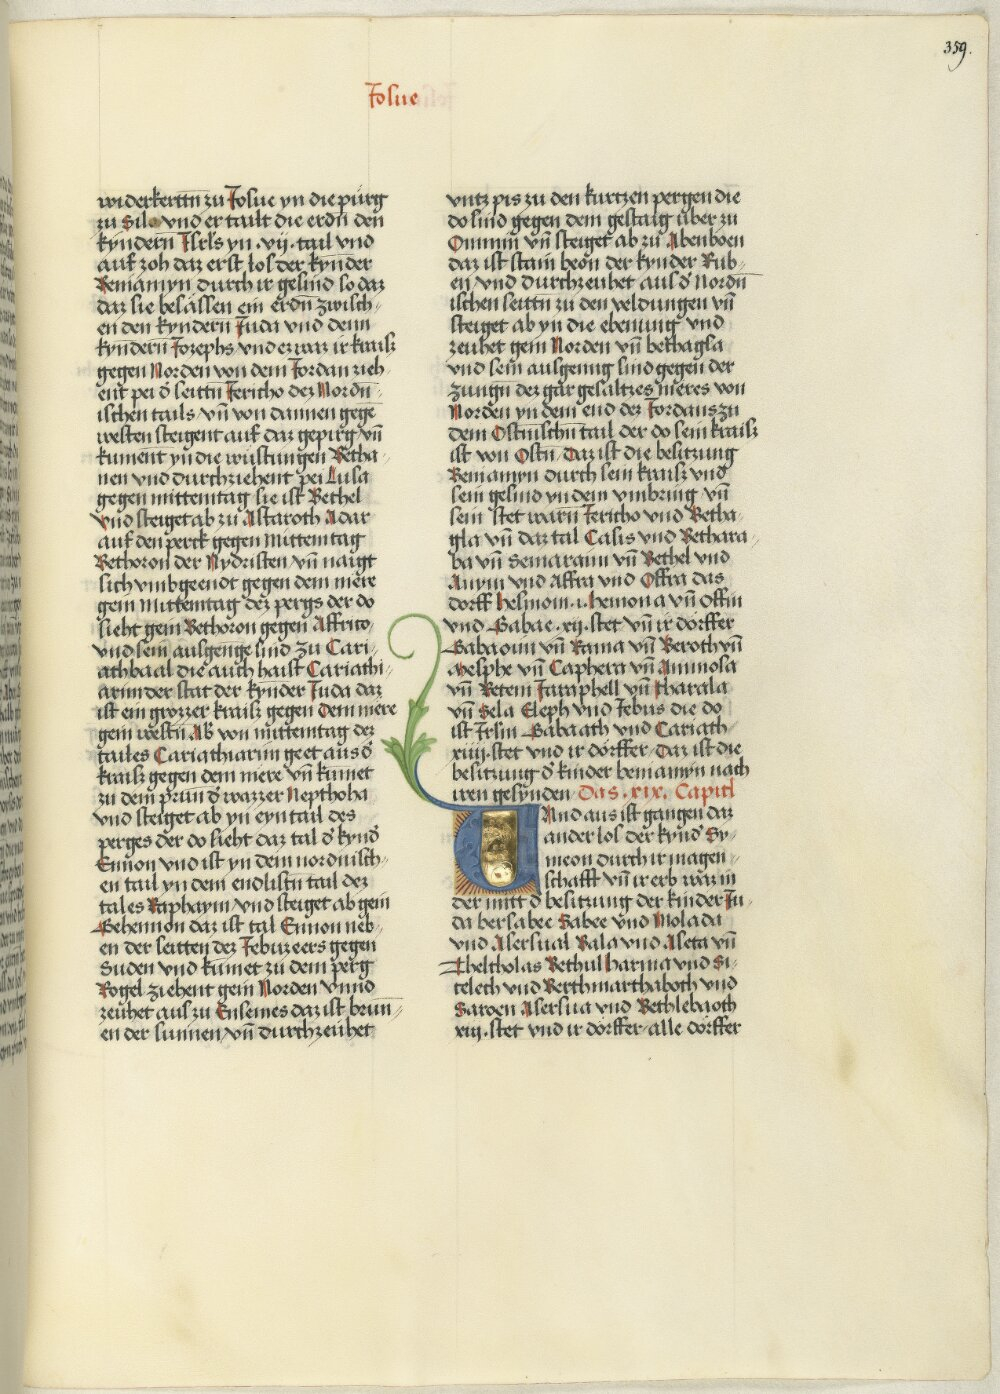 359.
Josue
widerkerttn zu Josue yn die pürg
zu Silo vnd er tailt die erdñ den
kyndern Isrls yn .vij. tail vnd
auf zoh daz erst los der kynder
Beniamyn durch ir gesind so daz
daz sie besässen ein Erdñ zwisch-
en den kyndern Juda vnd denn
kyndern Jozephs vnd ez waz ir kraisz
gegen Norden von dem Jordan zieh-
ent pei d̄ seittñ Jericho dez Nordñ-
ischen tails vñ von dannen gegē
westen steigent auf daz gepirg vñ
kument yn die wüstungen Betha-
nen vnd durchziehent pei Lusa
gegen mittemtag sie ist Bethel
vnd steiget ab zu Astaroth Adar
auf den perck gegen Mittemtag
Bethoron der Nydristen vñ naigt
sich vmbgeendt gegen dem mere
gem Mittemtag dez pergs der do
sieht gem Bethoron gegen Affrico
vnd sein ausgenge sind zu Cari-
athbaal die auch haist Cariathi-
arim der stat der kynder Juda daz
ist ein grozzer kraisz gegen dem mere
gem westñ Ab von mittemtag dez
tailes Cariathiarim geet aus d̄
kraisz gegen dem mere vñ kumet
zu dem prun d̄ wazzer Nepthoha
vnd steiget ab yn eyn tail des
perges der do sieht daz tal d̄ kynd̄
Ennon vnd ist yn dem nordnisch-
en tail yn dem endlistñ tail dez
tales Raphaym vnd steiget ab gem
Gehennon daz ist tal Ennon neb-
en der seitten dez Jebuzeers gegen
Suden vnd kumet zu dem perg
Rogel ziehent gem Norden vnnd
zeuhet aus zu Ensemes daz ist brun-
en der sunnen vñ durchzeuhet
vntz pis zu den kurtzen pergen die
do sind gegen dem gestaig über zu
Ommin vñ steiget ab zu Abenboen
daz ist stain beon der kynder Rub-
en vnd durchzeuhet aus d̄ Nordñ
ischen seittñ zu den veldungen vñ
steiget ab yn die ebenung vnd
zeuhet gem Norden vñ bethagla
vnd sein ausgenng sind gegen der
zungñ dez gar gesaltzes meres von
Norden yn dem end dez Jordans zu
dem Ostnischñ tail der do sein kraisz
ist von Ostñ daz ist die besitzung
Beniamyn durch sein kraisz vnd
sein gesind yn dem vmbring vñ
sein stet warñ Jericho vnd Betha-
gla vñ daz tal Casus vnd Bethara-
ba vñ Semaraim vñ Bethel vnd
Auym vnd Affra vnd Offra das
dorff helmom .i. hemona vñ Offni
vnd Gabae .xij. stet vñ ir dörffer
Gabaoim vñ Rama vñ Beroth vñ
Mesphe vñ Caphera vñ Ammosa
vñ Retem Jaraphell vñ tharala
vñ Sela Eleph vnd Jebus die do
ist Jrlm Gabaath vnd Cariath
xiiij. stet vnd ir dörffer Daz ist die
besitzung d̄ kinder beniamyn nach
iren gesynden Das .xix. Capitl
Vnd aus ist gangen daz
ander los der kynd̄ Sy-
meon durch ir magen-
schafft vñ ir erb waz in
der mitt d̄ besitzung der kinder Ju-
da bersabee Sabee vnd Molada
vnd Asersual Bala vnd Aseta vñ
Theltholas Bethul harma vnd Si-
telech vnd Berthmarthaboth vnd
Saroen Asersua vnd Bethlebaoth
xiij. stet vnd ir dörffer alle dörffer